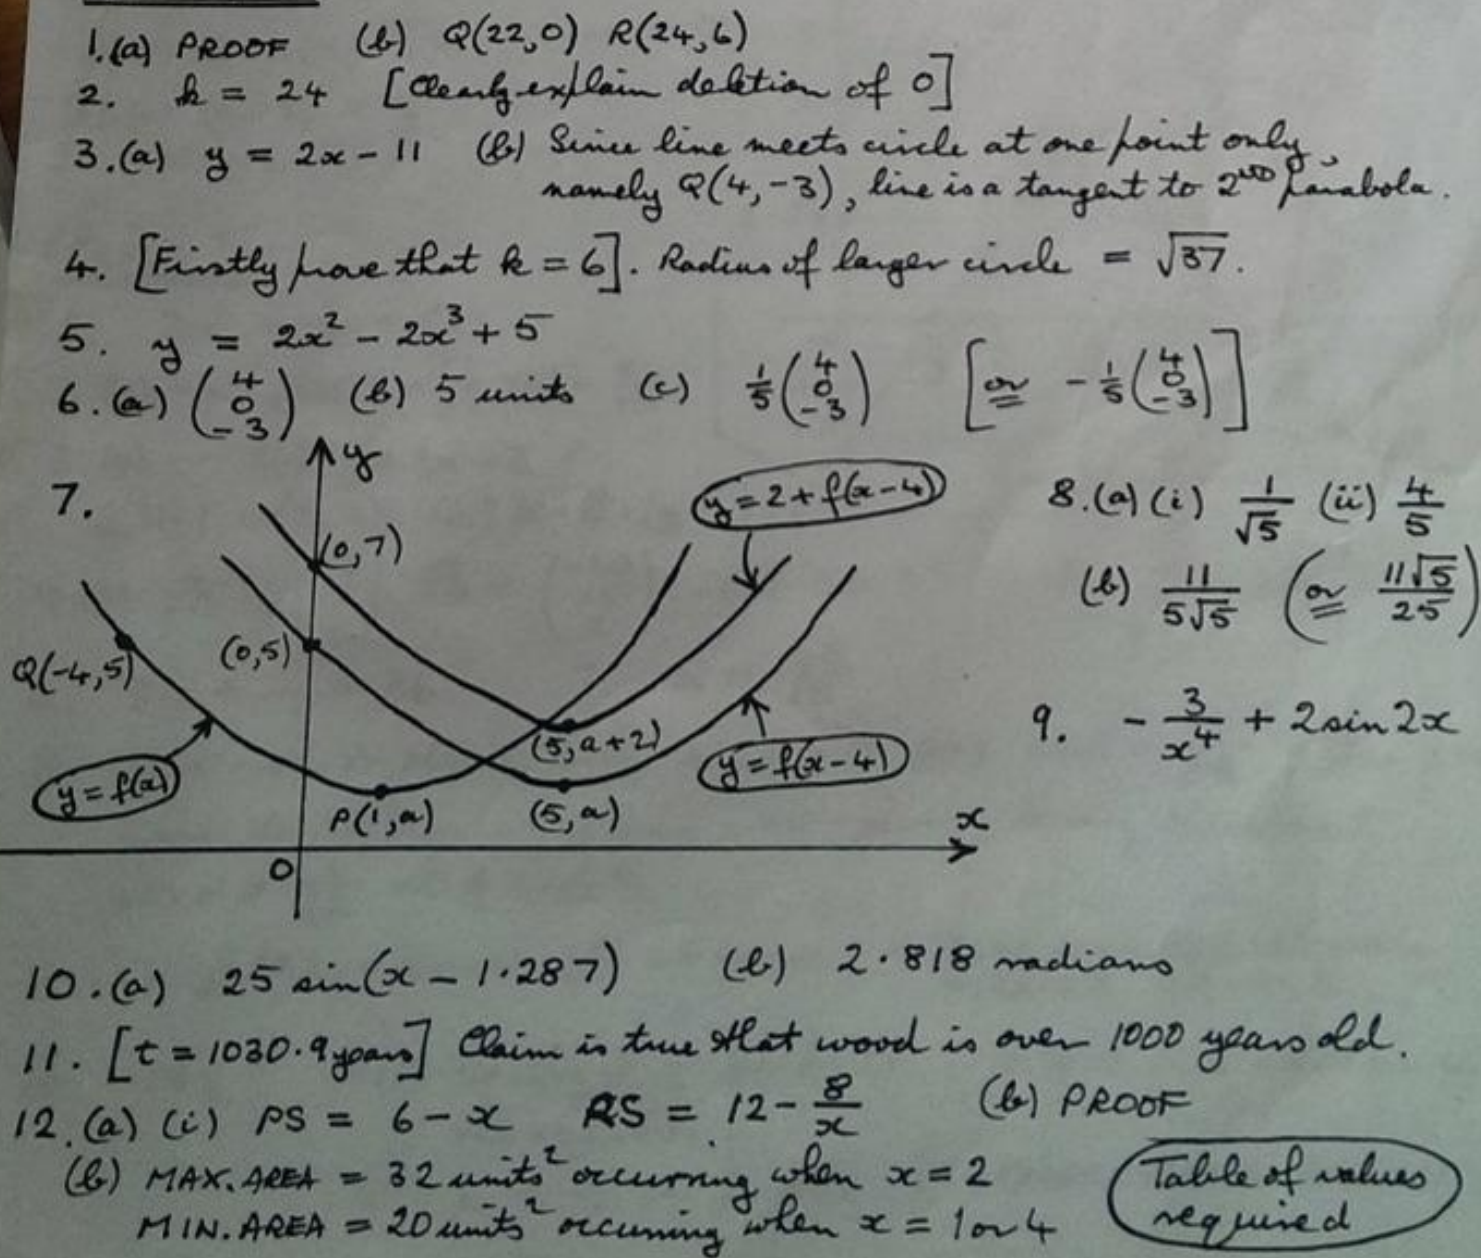 1.(a) PROOF (b) Q(22,0) R(24,6)
2. k = 24 [Clearly explain deletion of 0]
3.(a) y = 2x - 11 (b) Since line meets circle at one point only,
namely Q(4,-3), line is a tangent to 2ND parabola.
4. [Firstly prove that k = 6]. Radius of larger circle = √37.
5. y = 2x² - 2x³ + 5
6.(a) (4 0 -3) (b) 5 units (c) 1/5 (4 0 -3) [or - 1/5 (4 0 -3)]
7.
y
y = 2 + f(x-4)
(0,7)
(0,5)
Q(-4,5)
y = f(x)
P(1,a)
(5,a+2)
(5,a)
y = f(x-4)
x
O
8.(a)(i) 1/√5 (ii) 4/5
(b) 11/5√5 (or 11√5/25)
9. - 3/x⁴ + 2 sin 2x
10.(a) 25 sin(x - 1.287) (b) 2.818 radians
11. [t = 1030.9 years] Claim is true that wood is over 1000 years old.
12.(a)(i) PS = 6 - x RS = 12 - 8/x (b) PROOF
(b) MAX. AREA = 32 units² occurring when x = 2
MIN. AREA = 20 units² occurring when x = 1 or 4
Table of values
required